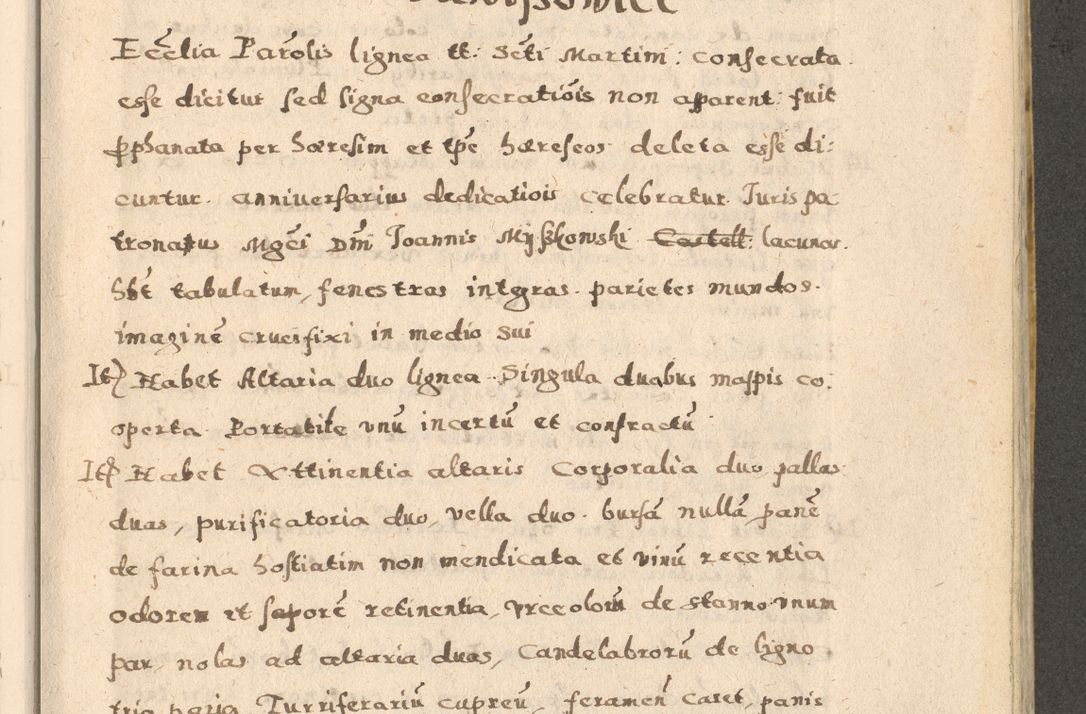 Ecclia Parolis lignea tt: Scti Martini: consecrata
esse dicitur sed signa consecratiõis non aparent: fuit
pphanata per hæresim et tpe hæreseos deleta esse di:
cuntur. anniversarius dedicatiois celebratur Juris pa
tronatus Mgci Dni Joannis Myszkowski Castell: lacunar.
hbt tabulatum, fenestras integras. parietes mundos.
imaginē crucifixi in medio sui
It) Habet Altaria duo lignea. Singula duabus mappis co:
operta. Portatile unū incertū et confractū
It) Habet Attinentia altaris Corporalia duo, pallas
duas, purificatoria duo, vella duo. bursā nullā, panē
de farina hostiatim non mendicata et vinū recentia
odorem et saporē retinentia, vrceolorū de stanno vnum
par, nolas ad altaria duas, Candelabrorū de ligno
tria paria Turriferariū cupreū, feramen caret, panis